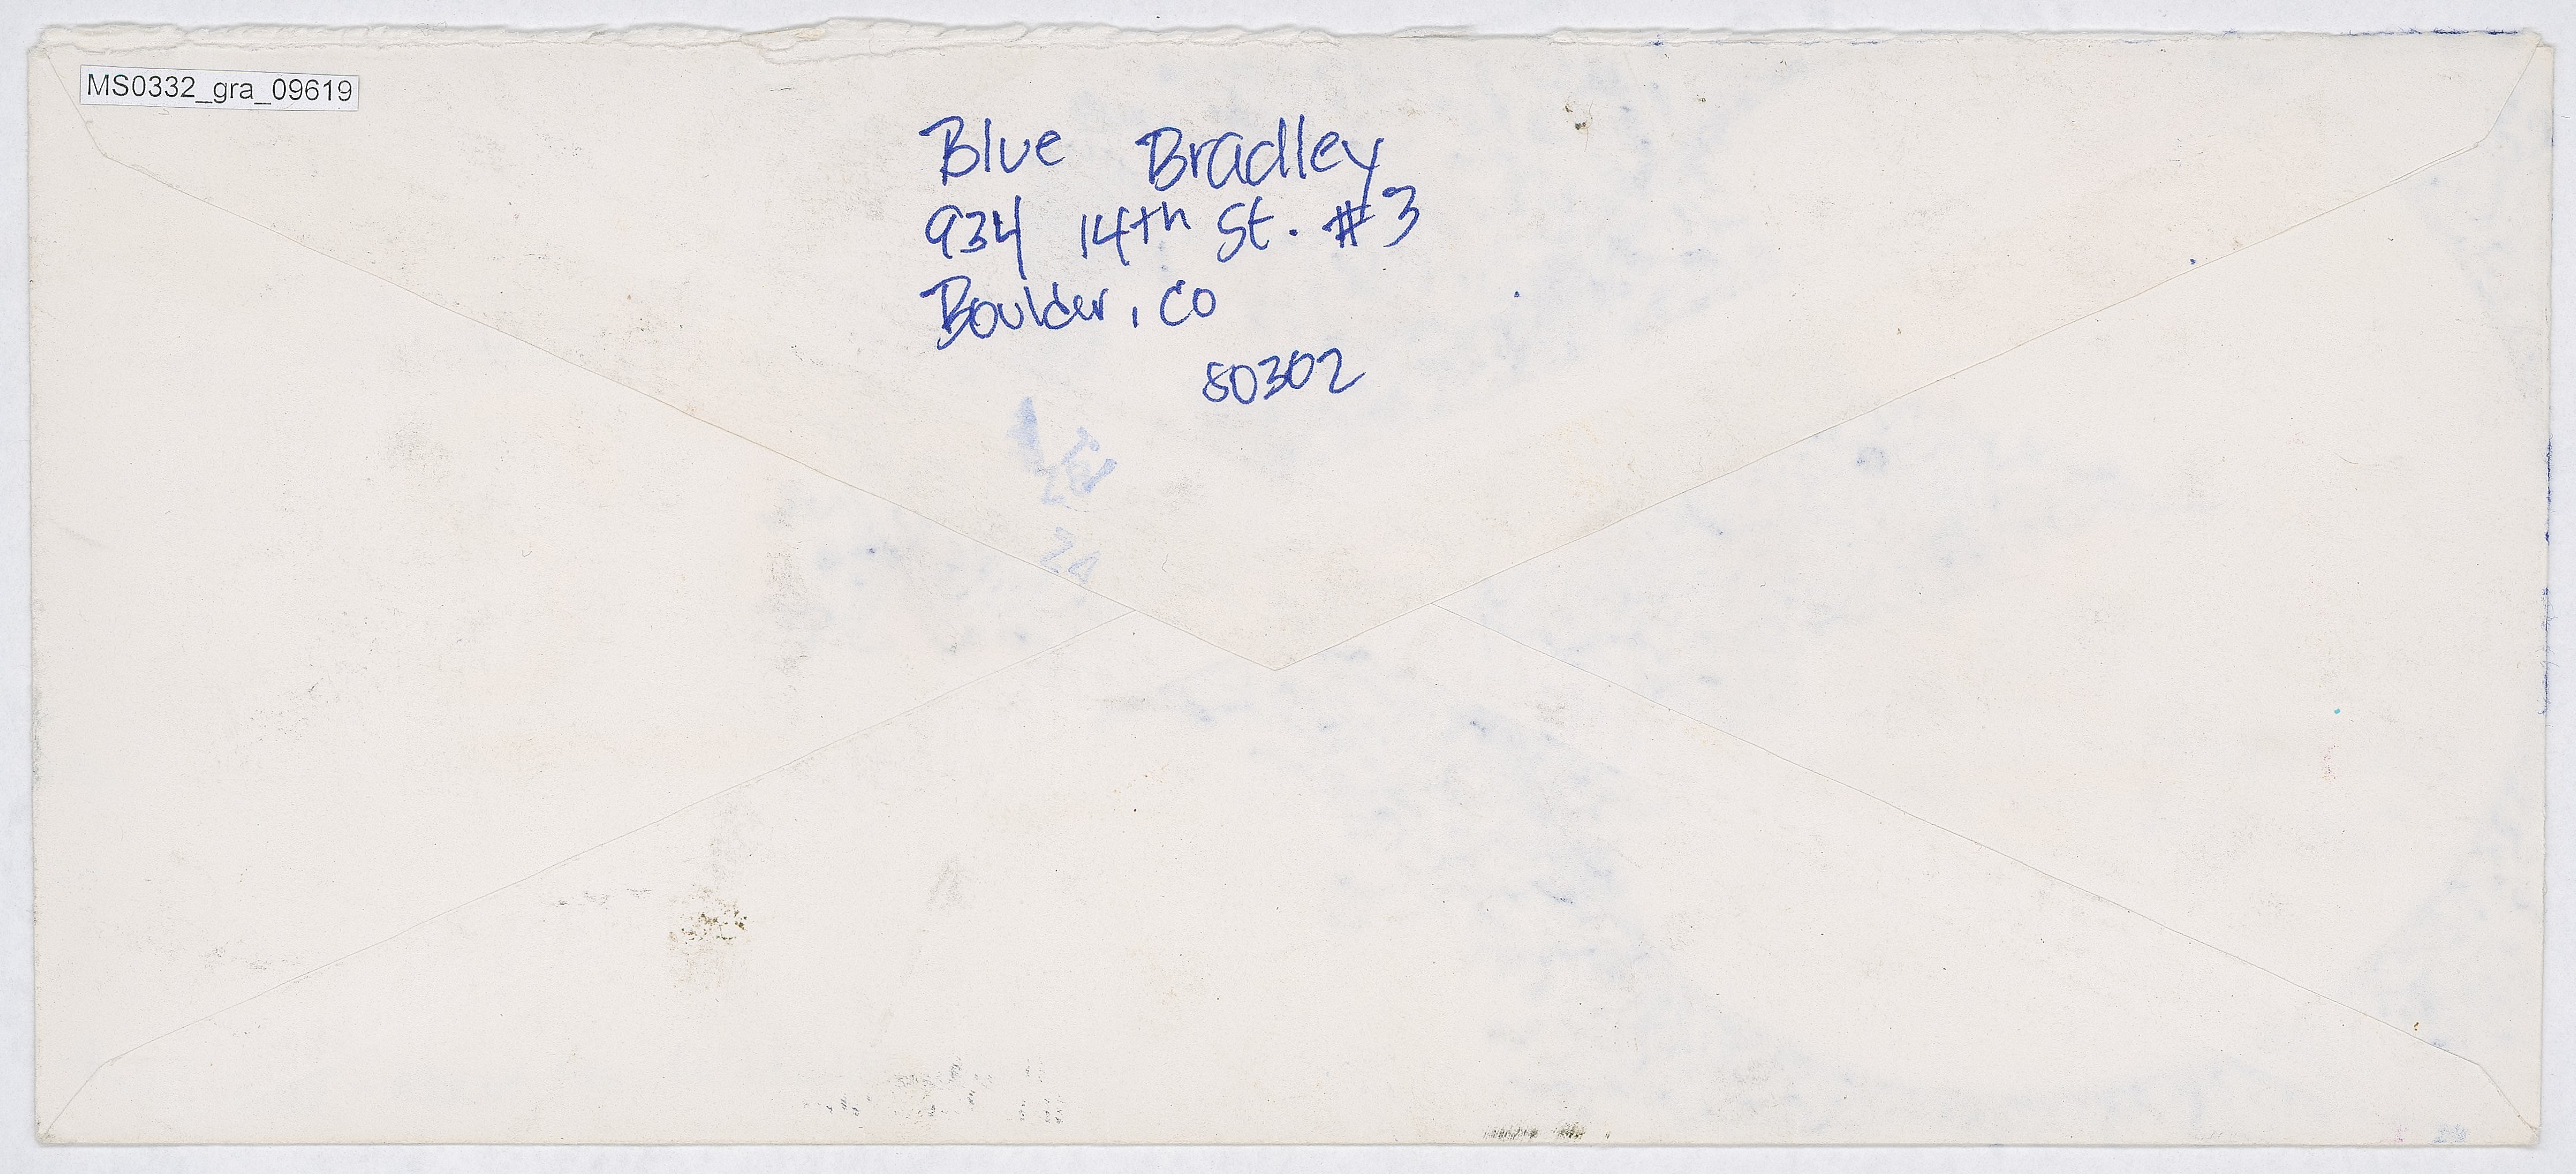 MS0332_gra_09619
Blue Bradley
934 14th St. #3
Boulder, CO
80302
24